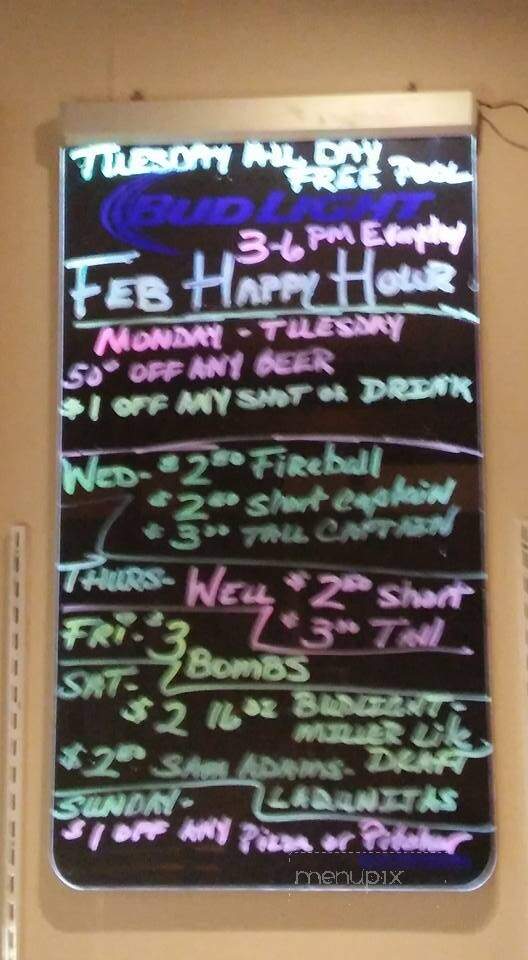 TUESDAY ALL DAY
FREE POOL
BUD LIGHT
3-6 PM Everyday
FEB HAPPY HOUR
MONDAY - TUESDAY
50¢ OFF ANY BEER
$1 OFF ANY SHOT or DRINK
WED- $2.50 Fireball
$2.50 short captain
$3.00 TALL CAPTAIN
THURS- WELL $2.50 short
$3.00 Tall
FRI- $3
BOMBS
SAT-
$2 16oz BUDLIGHT-
MILLER Lite
DRAFT
$2.50 SAM ADAMS-
LAGUNITAS
SUNDAY-
$1 OFF ANY Pizza or Pitcher
menupix